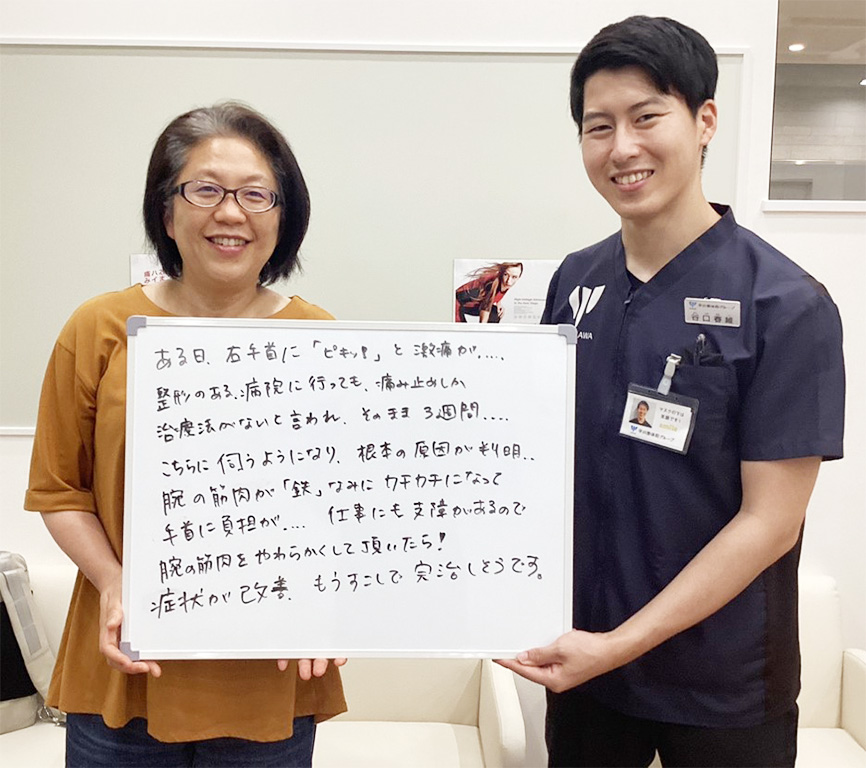 ある日、右手首に「ピキッ!」と激痛が.....
整形のある、病院に行っても、痛み止めしか
治療法がないと言われ、そのまま3週間....
こちらに伺うようになり、根本の原因が判明..
腕の筋肉が「鉄」なみにカチカチになって
手首に負担が.... 仕事にも支障があるので
腕の筋肉をやわらかくして頂いたら!
症状が改善、もうすこしで完治しそうです。
AWA
谷口春綺
マスクの下は
笑顔です!